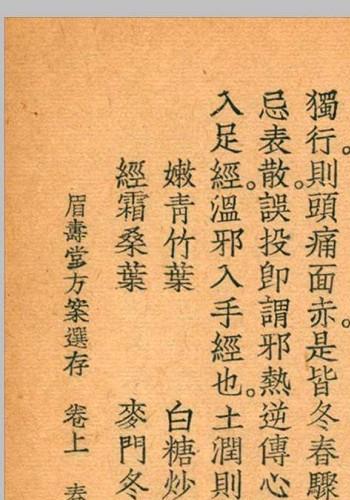 獨行。則頭痛面赤。是皆冬春驟
忌表散。誤投卽謂邪熱逆傳心
入足經。溫邪入手經也。土潤則
嫩青竹葉 白糖炒
經霜桑葉 麥門冬
眉壽堂方案選存 卷上